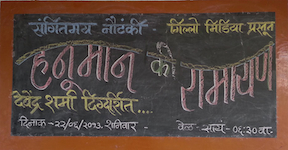 संगितमय नौटंकी मिल्लो मिडिया प्रस्तुत
हनूमान की रामायण
देवेंद्र शर्मा दिग्दर्शित....
दिनांक - २२/०६/२०१३. शनिवार . वेळ - सायं - ०६:३० वा.